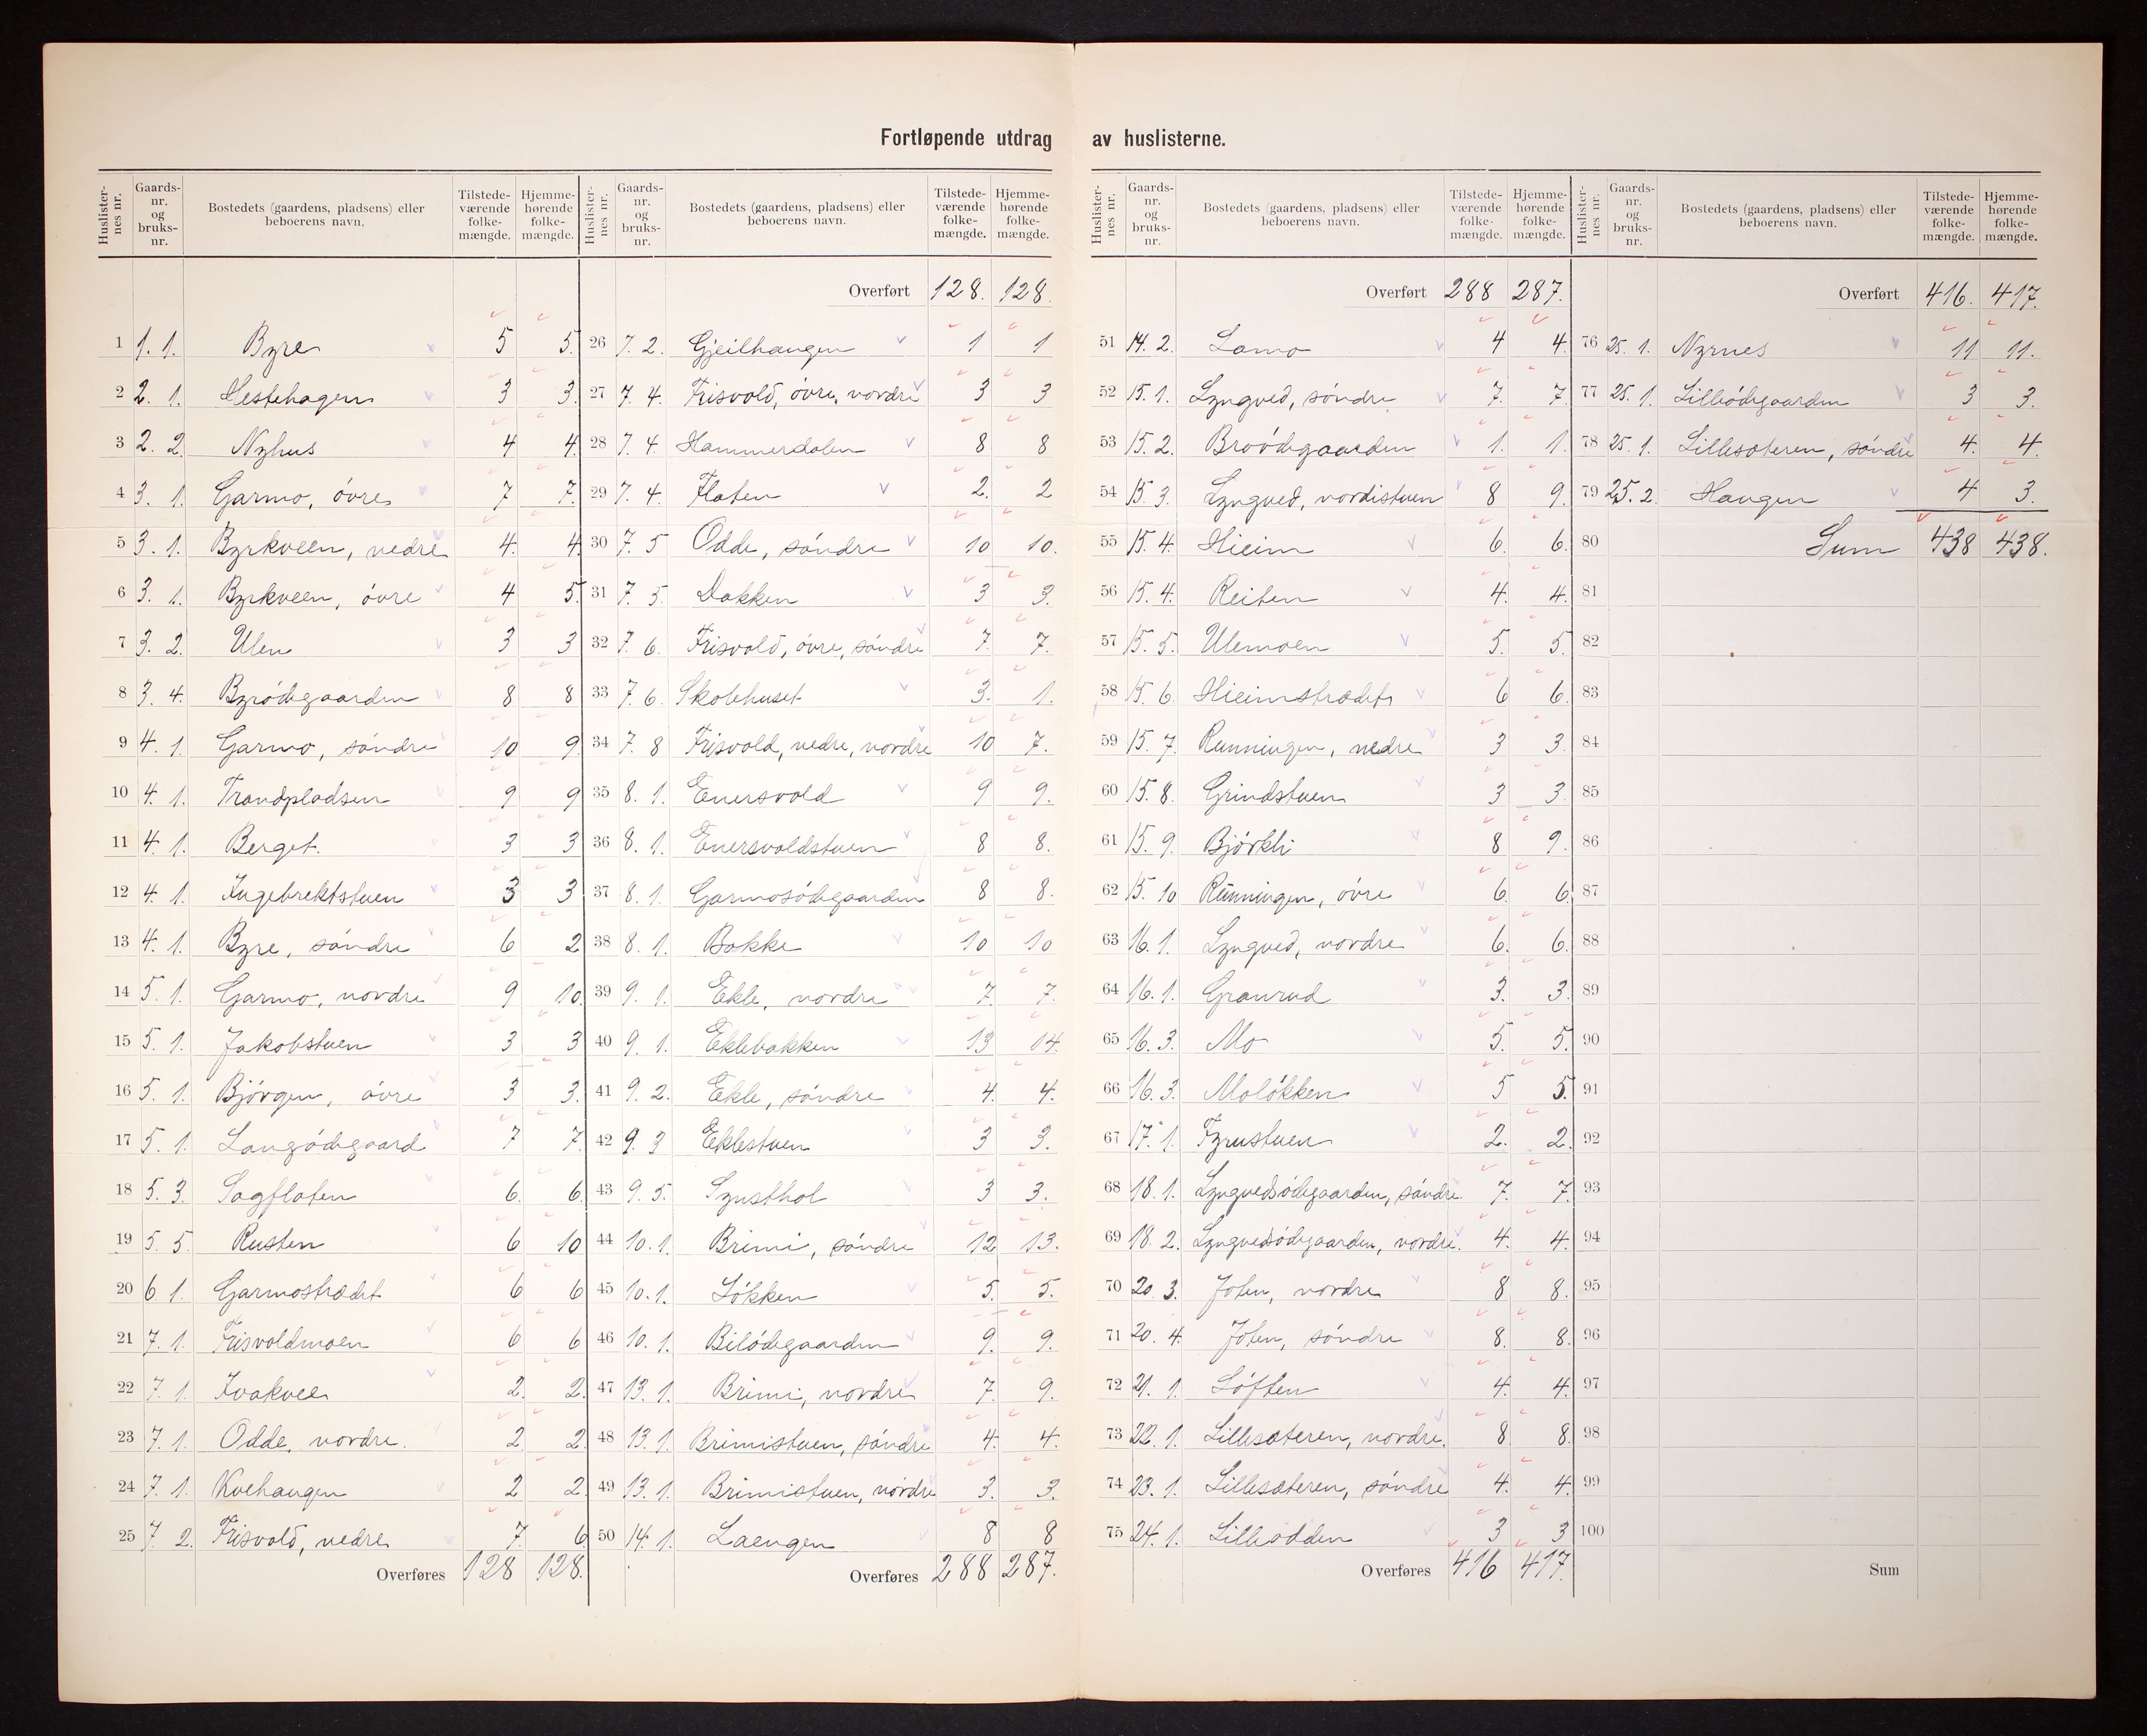 Fortløpende utdrag av huslisterne.
Huslister-nes nr. Gaards-nr. og bruks-nr. Bostedets (gaardens, pladsens) eller beboerens navn. Tilstede-værende folke-mængde. Hjemme-hørende folke-mængde.
1 1. 1. Byre 5 5.
2 2. 1. Hestehagen 3 3.
3 2. 2. Nyhus 4 4.
4 3. 1. Garmo, óvre 7 7.
5 3. 1. Byrkveen, nedre 4. 4.
6 3. 1. Byrkveen, óvre 4 5.
7 3. 2. Ulen 3 3
8 3. 4. Byródegaarden 8 8
9 4. 1. Garmo, sóndre 10 9.
10 4. 1. Trondpladsen 9 9
11 4. 1. Berget. 3 3
12 4. 1. Ingebrektstuen 3 3
13 4. 1. Byre, sóndre 6 2
14 5. 1. Garmo, nordre 9 10.
15 5. 1. Jakobstuen 3 3
16 5. 1. Bjórgen, óvre 3 3.
17 5. 1. Langódegaard 7 7.
18 5. 3. Sagflaten 6. 6.
19 5. 5. Rusten 6 10
20 6 1. Garmostrædet 6 6
21 7. 1. Frisvoldmoen 6 6
22 7. 1. Kvakvee 2. 2.
23 7. 1. Odde, nordre. 2 2.
24 7. 1. Kvehaugen 2 2.
25 7. 2. Frisvold, nedre 7. 6
Overføres 128 128.
Huslister-nes nr. Gaards-nr. og bruks-nr. Bostedets (gaardens, pladsens) eller beboerens navn. Tilstede-værende folke-mængde. Hjemme-hørende folke-mængde.
Overført 128. 128.
26 7. 2. Gjeilhaugen 1 1
27 7. 4. Frisvold, óvre, nordre 3 3
28 7. 4. Hammerdalen 8 8
29 7. 4. Flaten 2. 2
30 7. 5 Odde, sóndre 10 10.
31 7. 5. Dokken 3 3.
32 7. 6. Frisvold, óvre, sóndre 7. 7.
33 7. 6. Skolehuset 3. 1.
34 7. 8 Frisvold, nedre, nordre 10 7.
35 8. 1. Enersvold 9 9.
36 8. 1. Enersvoldstuen 8 8.
37 8. 1. Garmosódegaarden 8 8.
38 8. 1. Bakke 10 10
39 9. 1. Ekle, nordre 7. 7.
40 9. 1. Eklebakken 13 14.
41 9. 2. Ekle, sóndre 4. 4.
42 9. 3 Eklestuen 3 3.
43 9. 5. Synsthol 3 3.
44 10. 1. Brimi, sóndre 12 13.
45 10. 1. Lókken 5. 5.
46 10. 1. Bilódegaarden 9. 9.
47 13. 1. Brimi, nordre 7. 9.
48 13. 1. Brimistuen, sóndre 4. 4.
49 13. 1. Brimistuen, nordre 3. 3.
50 14. 1. Laengen 8 8
Overføres 288 287.
Huslister-nes nr. Gaards-nr. og bruks-nr. Bostedets (gaardens, pladsens) eller beboerens navn. Tilstede-værende folke-mængde. Hjemme-hørende folke-mængde.
Overført 288 287.
51 14. 2. Lamo 4 4.
52 15. 1. Lyngved, sóndre 7. 7.
53 15. 2. Broódegaarden 1. 1.
54 15. 3. Lyngved, nordistuen 8 9.
55 15. 4. Hieim 6. 6.
56 15. 4. Reiten 4. 4.
57 15. 5. Ulemoen 5. 5.
58 15. 6. Hieimstrædet 6 6.
59 15. 7. Runningen, nedre 3 3.
60 15. 8. Grindstuen 3 3.
61 15. 9. Bjórkli 8 9.
62 15. 10 Runningen, óvre 6 6.
63 16. 1. Lyngved, nordre 6. 6.
64 16. 1. Granrud 3. 3.
65 16. 3. Mo 5. 5.
66 16. 3. Molókken 5 5.
67 17. 1. Fyrustuen 2. 2.
68 18. 1. Lyngvedsódegaarden, sóndre. 7. 7.
69 18. 2. Lyngvedsódegaarden, nordre. 4. 4.
70 20. 3. Joten, nordre 8 8.
71 20. 4. Joten, sóndre 8. 8.
72 21. 1. Lóften 4. 4.
73 22. 1. Lillesæteren, nordre. 8 8.
74 23. 1. Lillesæteren, sóndre 4. 4.
75 24. 1. Lilleodden 3 3
Overføres 416 417.
Huslister-nes nr. Gaards-nr. og bruks-nr. Bostedets (gaardens, pladsens) eller beboerens navn. Tilstede-værende folke-mængde. Hjemme-hørende folke-mængde.
Overført 416. 417.
76 25. 1. Nyrnes 11 11.
77 25. 1. Lilleódegaarden 3 3.
78 25. 1. Lillesæteren, sóndre 4. 4.
79 25. 2. Haugen 4 3.
80 Sum 438 438.
81
82
83
84
85
86
87
88
89
90
91
92
93
94
95
96
97
98
99
100
Sum